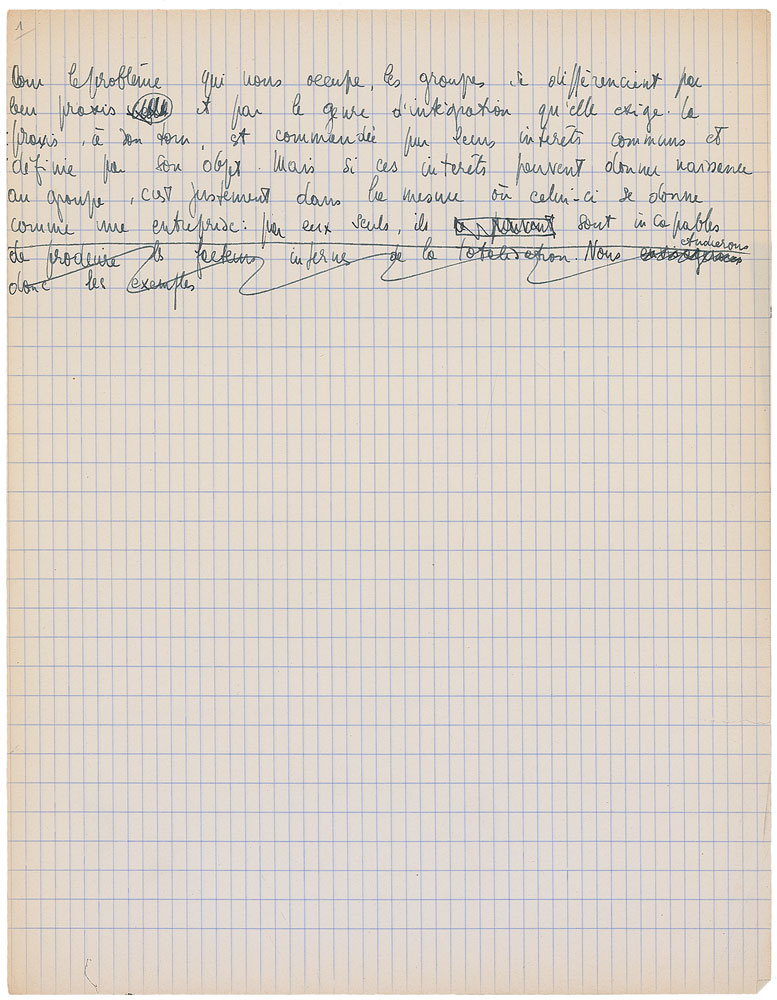 1
Pour le problème qui nous occupe, les groupes se différencient par
leur praxis et par le genre d'intégration qu'elle exige. La
praxis, à son tour, est commandée par leurs interêts communs et
définie par son objet. Mais si ces interêts peuvent donner naissance
au groupe, c'est justement dans la mesure où celui-ci se donne
comme une entreprise : par eux seuls, ils peuvent sont incapables
de produire les facteurs internes de la totalisation. Nous étudierons
donc les exemples